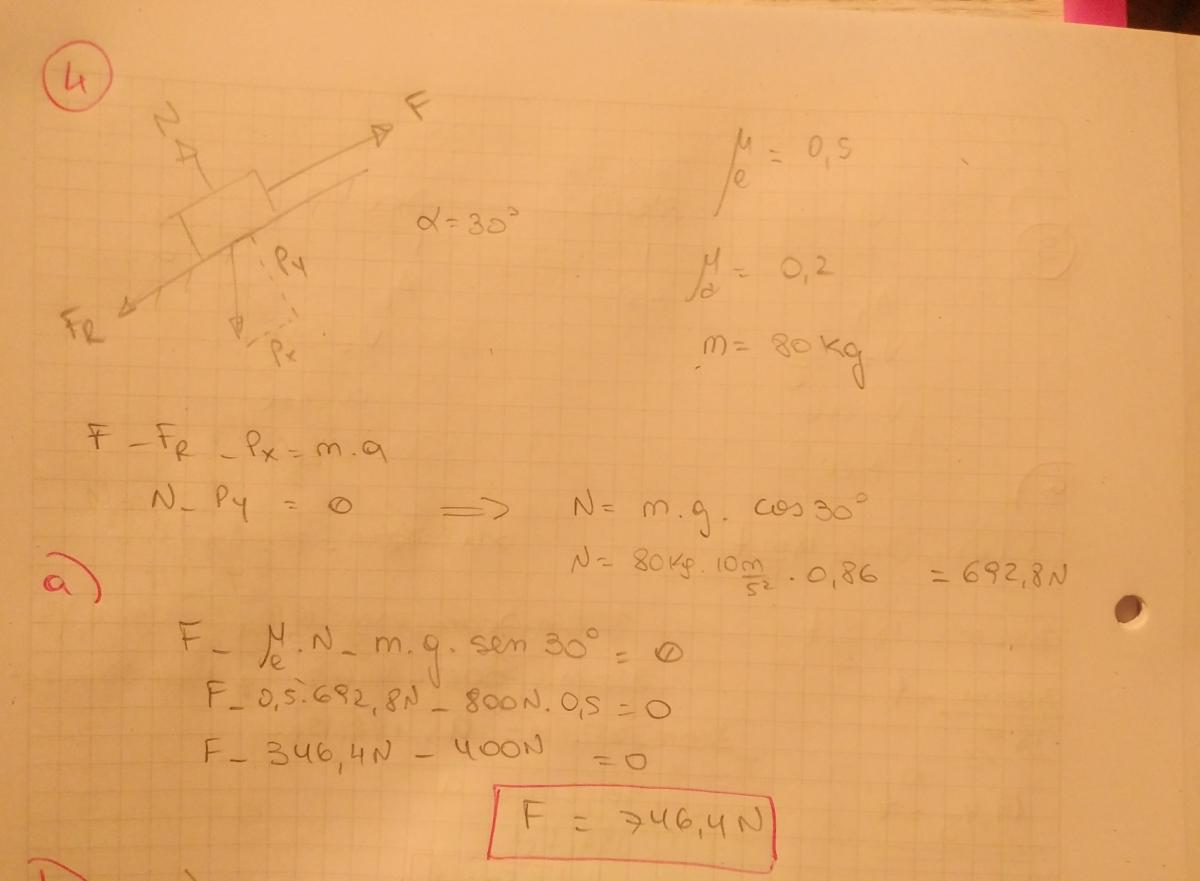 4
N
F
μe = 0,5
α = 30°
Py
μd = 0,2
FR
Px
m = 80 kg
F - FR - Px = m.a
N - Py = 0 ⟹ N = m.g. cos 30°
N = 80 kg. 10 m/s² . 0,86 = 692,8 N
a)
F - μe . N - m.g. sen 30° = 0
F - 0,5 . 692,8N - 800N. 0,5 = 0
F - 346,4N - 400N = 0
F = 746,4 N